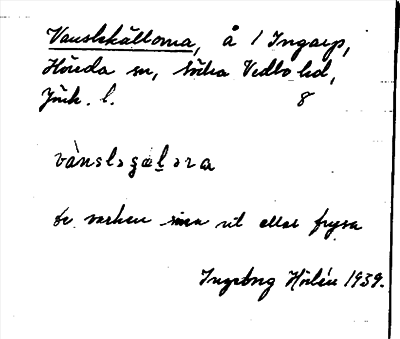 Vanslekällorna, å 1 Ingarp,
Höreda sn, södra Vedbo hd,
Jönk. l. 8
vànsləʂæl̠əra
de varken sina ut eller frysa
Ingeborg Hörlén 1939.